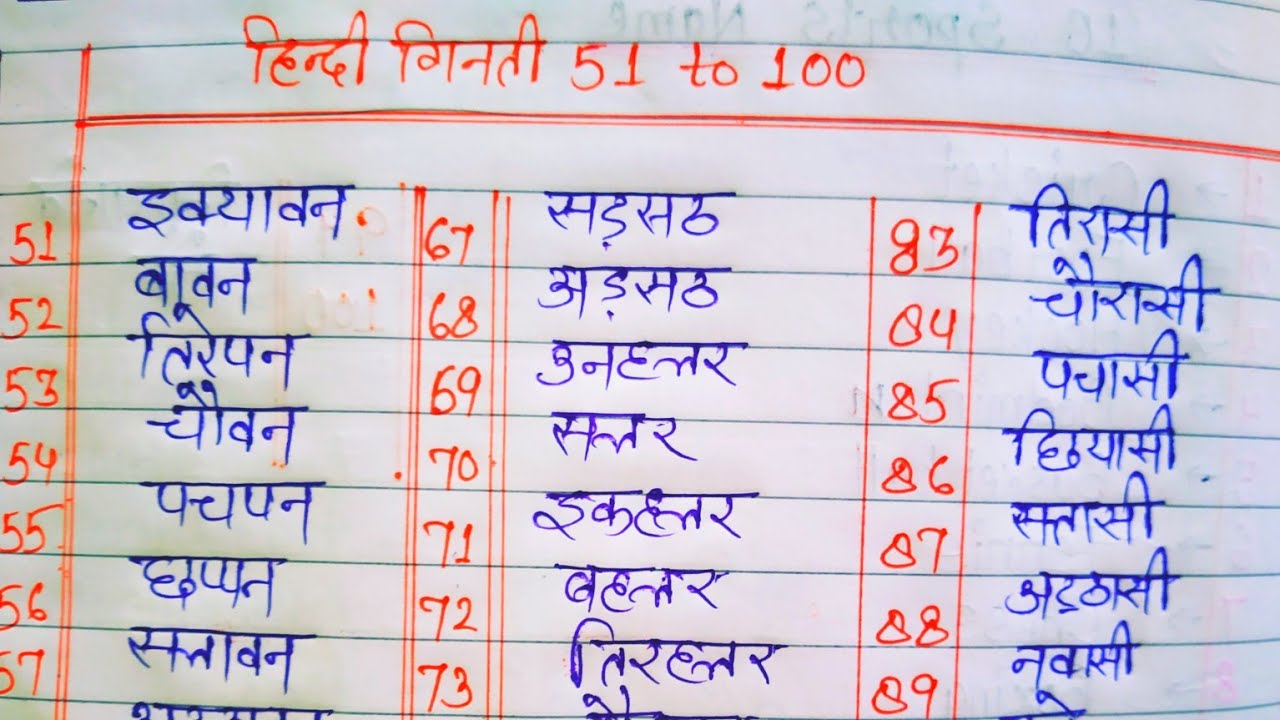 हिन्दी गिनती 51 to 100
51 इक्यावन 67 सड़सठ 83 तिरासी
52 बावन 68 अड़सठ 84 चौरासी
53 तिरेपन 69 उनहत्तर 85 पचासी
54 चौवन 70 सत्तर 86 छियासी
55 पचपन 71 इकहत्तर 87 सत्तासी
56 छप्पन 72 बहत्तर 88 अठ्ठासी
57 सत्तावन 73 तिरहत्तर 89 नवासी